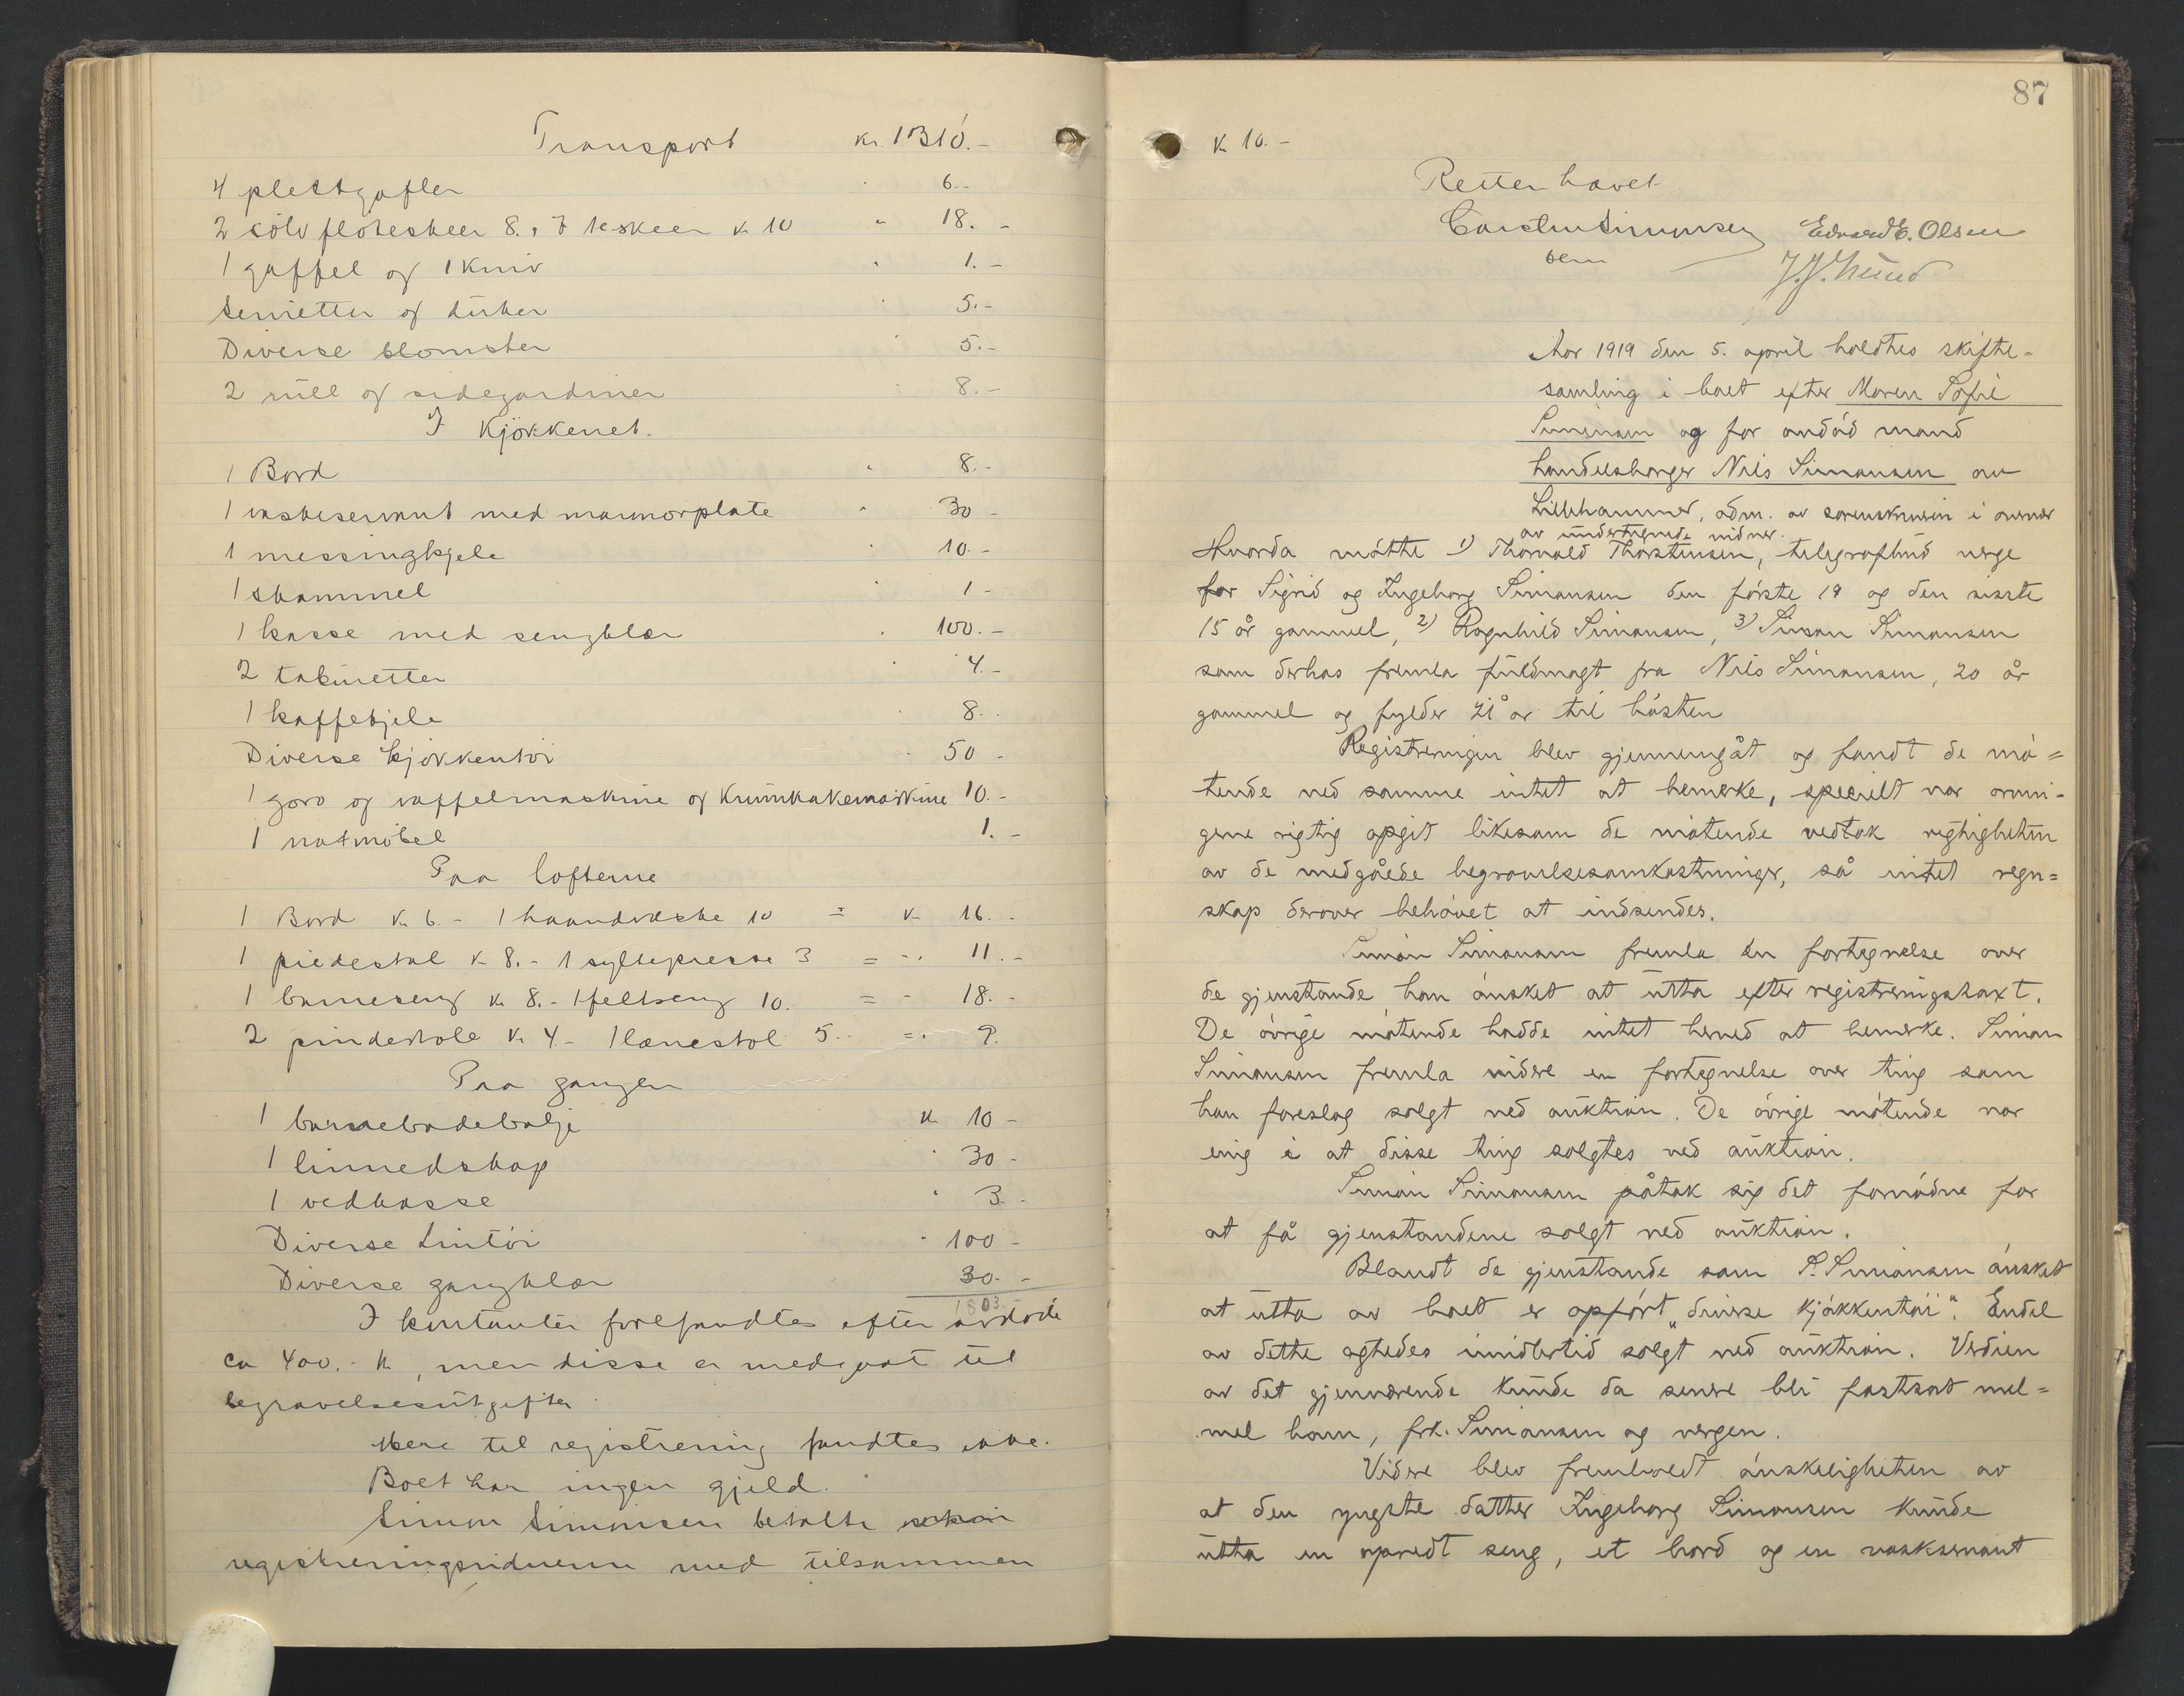 Transport kr. 1310.-
4 pletgafler " 6.-
2 sölv flöteskeer 8. 7 teskeer kr 10 " 18.-
1 gaffel og 1 kniv " 1.-
Servietter og duker " 5.-
Diverse blomster " 5.-
2 rull og sidegardiner " 8.-
I Kjökkenet.
1 Bord " 8.-
1 vaskeservant med marmorplate " 30 -
1 messingkjele " 10.-
1 skammel " 1 -
1 kasse med sengklær " 100.-
2 taburetter " 4.-
1 kaffekjele " 8.-
Diverse kjökkentöi " 50 -
1 goro og vaffelmaskine og Krumkakemaskine 10.-
1 natmöbel 1.-
Paa lofterne
1 Bord kr. 6.- 1 haandvæske 10 = kr 16.-
1 piedestal kr 8.- 1 syltepresse 3 = - 11.-
1 barneseng kr 8.- 1 feltseng 10. = - 18.-
2 pindestole kr. 4 - 1 lænestol 5.- = 9.
Paa gangen
1 barnebadebalje kr 10 -
1 linnedskap " 30 -
1 vedkasse " 3.-
Diverse Lintöi " 100 -
Diverse gangklær 30.-
1803.-
I kontanter forefandtes efter avdöde
ca 400.- kr, men disse er medgaat til
begravelsesutgifter.
Mere til registrering fandtes ikke.
Boet har ingen gjeld.
Simon Simonsen betalte
registreringsvidnerne med tilsammen
87
Kr 10.-
Retten hævet
Carsten Simonsen Edvard E. Olsen
J. J. Lund
Aar 1919 den 5. april holdtes skifte-
samling i boet efter Maren Sofie
Simensen og for avdöd mand
handelsborger Nils Simonsen av
Lillehammer, adm. av sorenskriveren i overvær
av undertegnede vidner.
Hvorda mötte 1) Thorvald Thorstensen, telegrafbud verge
for Sigrid og Ingeborg Simonsen den förste 19 og den sisste
15 år gammel, 2) Ragnhild Simonsen, 3) Simon Simonsen
som derhos fremla fuldmagt fra Nils Simonsen, 20 år
gammel og fylder 21 år til hösten
Registreringen blev gjennemgåt og fandt de mö=
tende ved samme intet at bemerke, specielt var arvin-
gene rigtig opgit likesom de mötende vedtok rigtigheten
av de medgåede begravelsesomkostninger, så intet regn=
skap derover behövet at indsendes.
Simon Simonsen fremla en fortegnelse over
de gjenstande han önsket at utta efter registreringstaxt.
De övrige mötende hadde intet herved at bemerke. Simon
Simonsen fremla videre en fortegnelse over ting som
han foreslog solgt ved auktion. De övrige mötende var
enig i at disse ting solgtes ved auktion.
Simon Simonsen påtok sig det fornödne for
at få gjenstandene solgt ved auktion.
Blandt de gjenstande som S. Simonsen önsket
at utta av boet er opfört "diverse kjökkentöi". Endel
av dette agtedes imidlertid solgt ved auktion. Verdien
av det gjenværende kunde da senere bli fastsat mel=
mel ham, frk. Simonsen og vergen.
Videre blev fremholdt önskeligheten av
at den yngste datter Ingeborg Simonsen kunde
utta en opredt seng, et bord og en vaskservant